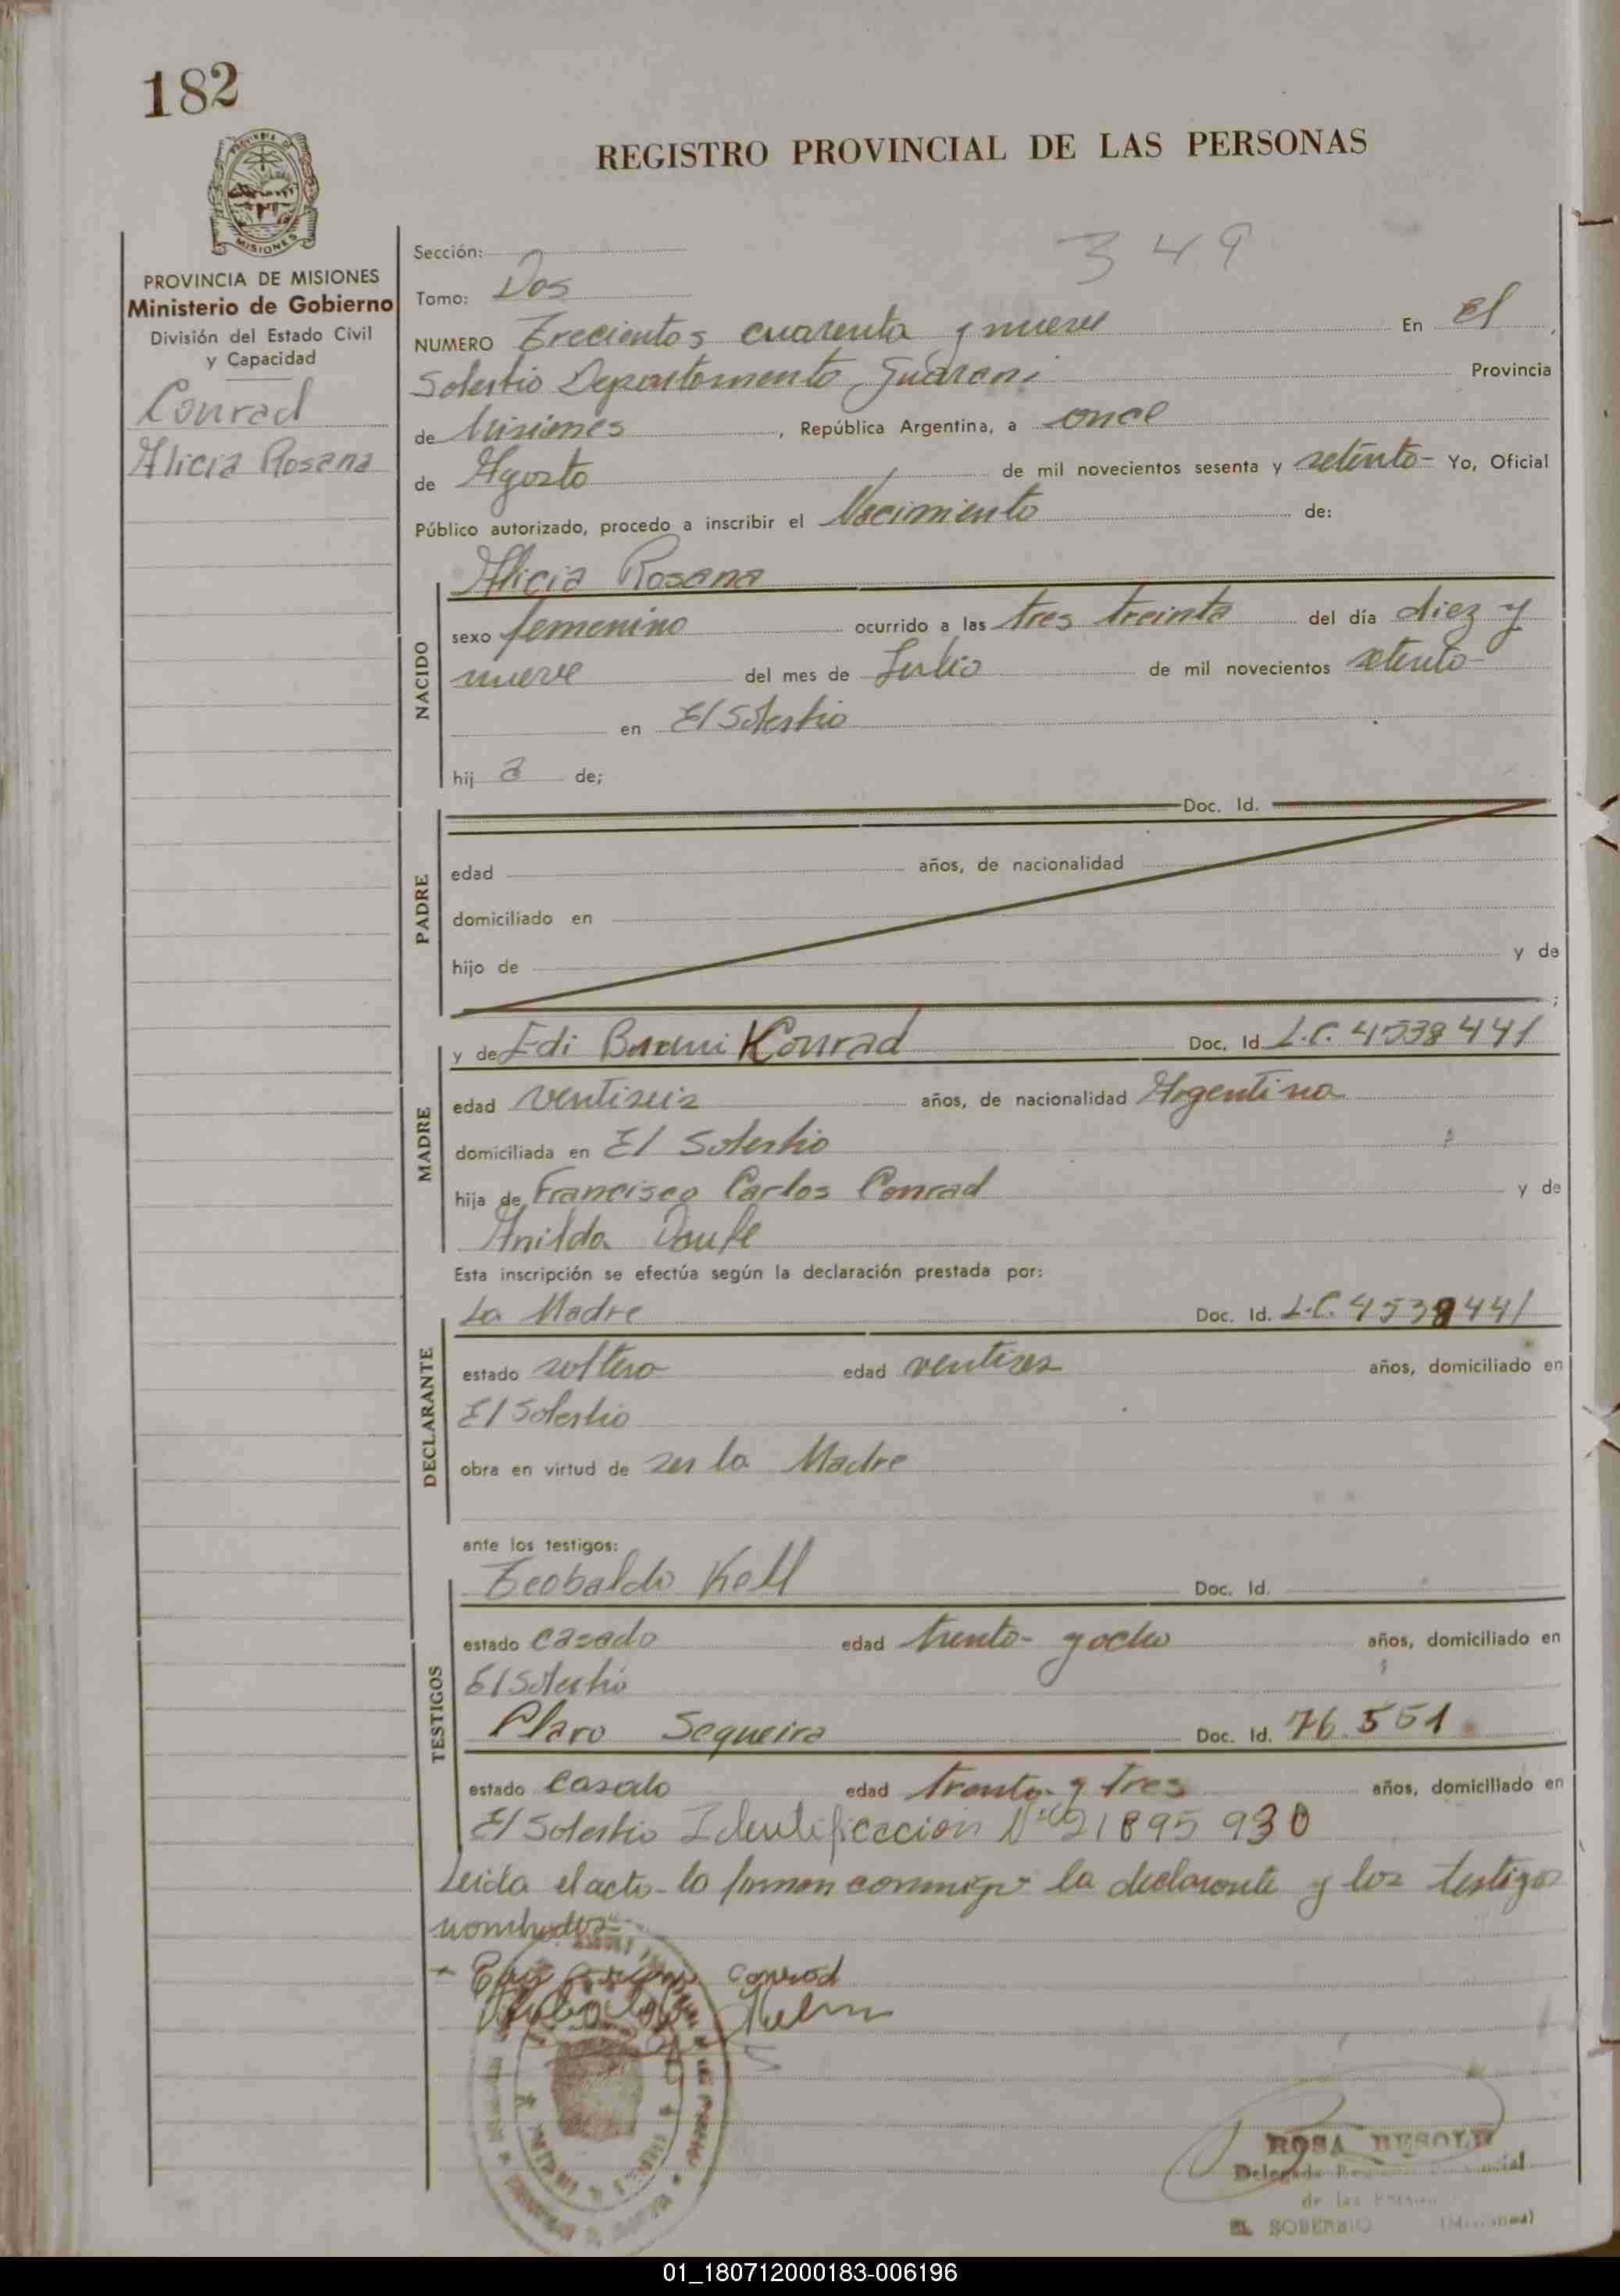 182
REGISTRO PROVINCIAL DE LAS PERSONAS
MISIONES
PROVINCIA DE MISIONES
Ministerio de Gobierno
División del Estado Civil
y Capacidad
Conrad
Alicia Rosana
349
Sección:
Tomo: Dos
NUMERO Trecientos cuarenta y nueve En El
Departamento Guarani Provincia
de Misiones, República Argentina, a once
de Agosto de mil novecientos sesenta y setenta- Yo, Oficial
Público autorizado, procedo a inscribir el Nacimiento de:
Alicia Rosana
NACIDO
sexo femenino ocurrido a las tres treinta del día diez y
nueve del mes de Julio de mil novecientos setenta-
en El
hij a de;
PADRE
Doc. Id.
edad años, de nacionalidad
domiciliado en
hijo de y de
;
MADRE
y de Edi Konrad Doc. Id. L.C. 4538441
edad años, de nacionalidad Argentina
domiciliada en El
hija de Francisco Carlos Conrad y de
Anilda
Esta inscripción se efectúa según la declaración prestada por:
DECLARANTE
La Madre Doc. Id. L.C. 4538441
estado soltera edad años, domiciliado en
El
obra en virtud de ser la Madre
ante los testigos:
TESTIGOS
Teobaldo Kell Doc. Id.
estado casado edad años, domiciliado en
El
Claro Sequeira Doc. Id. 76.551
estado casado edad y tres años, domiciliado en
El Identificacion Nº 21895930
Leida el acta la firman conmigo la declarante y los testigos
nombrados-
Conrad
ROSA BESOLD
EL SOBERBIO (Misiones)
01_180712000183-006196